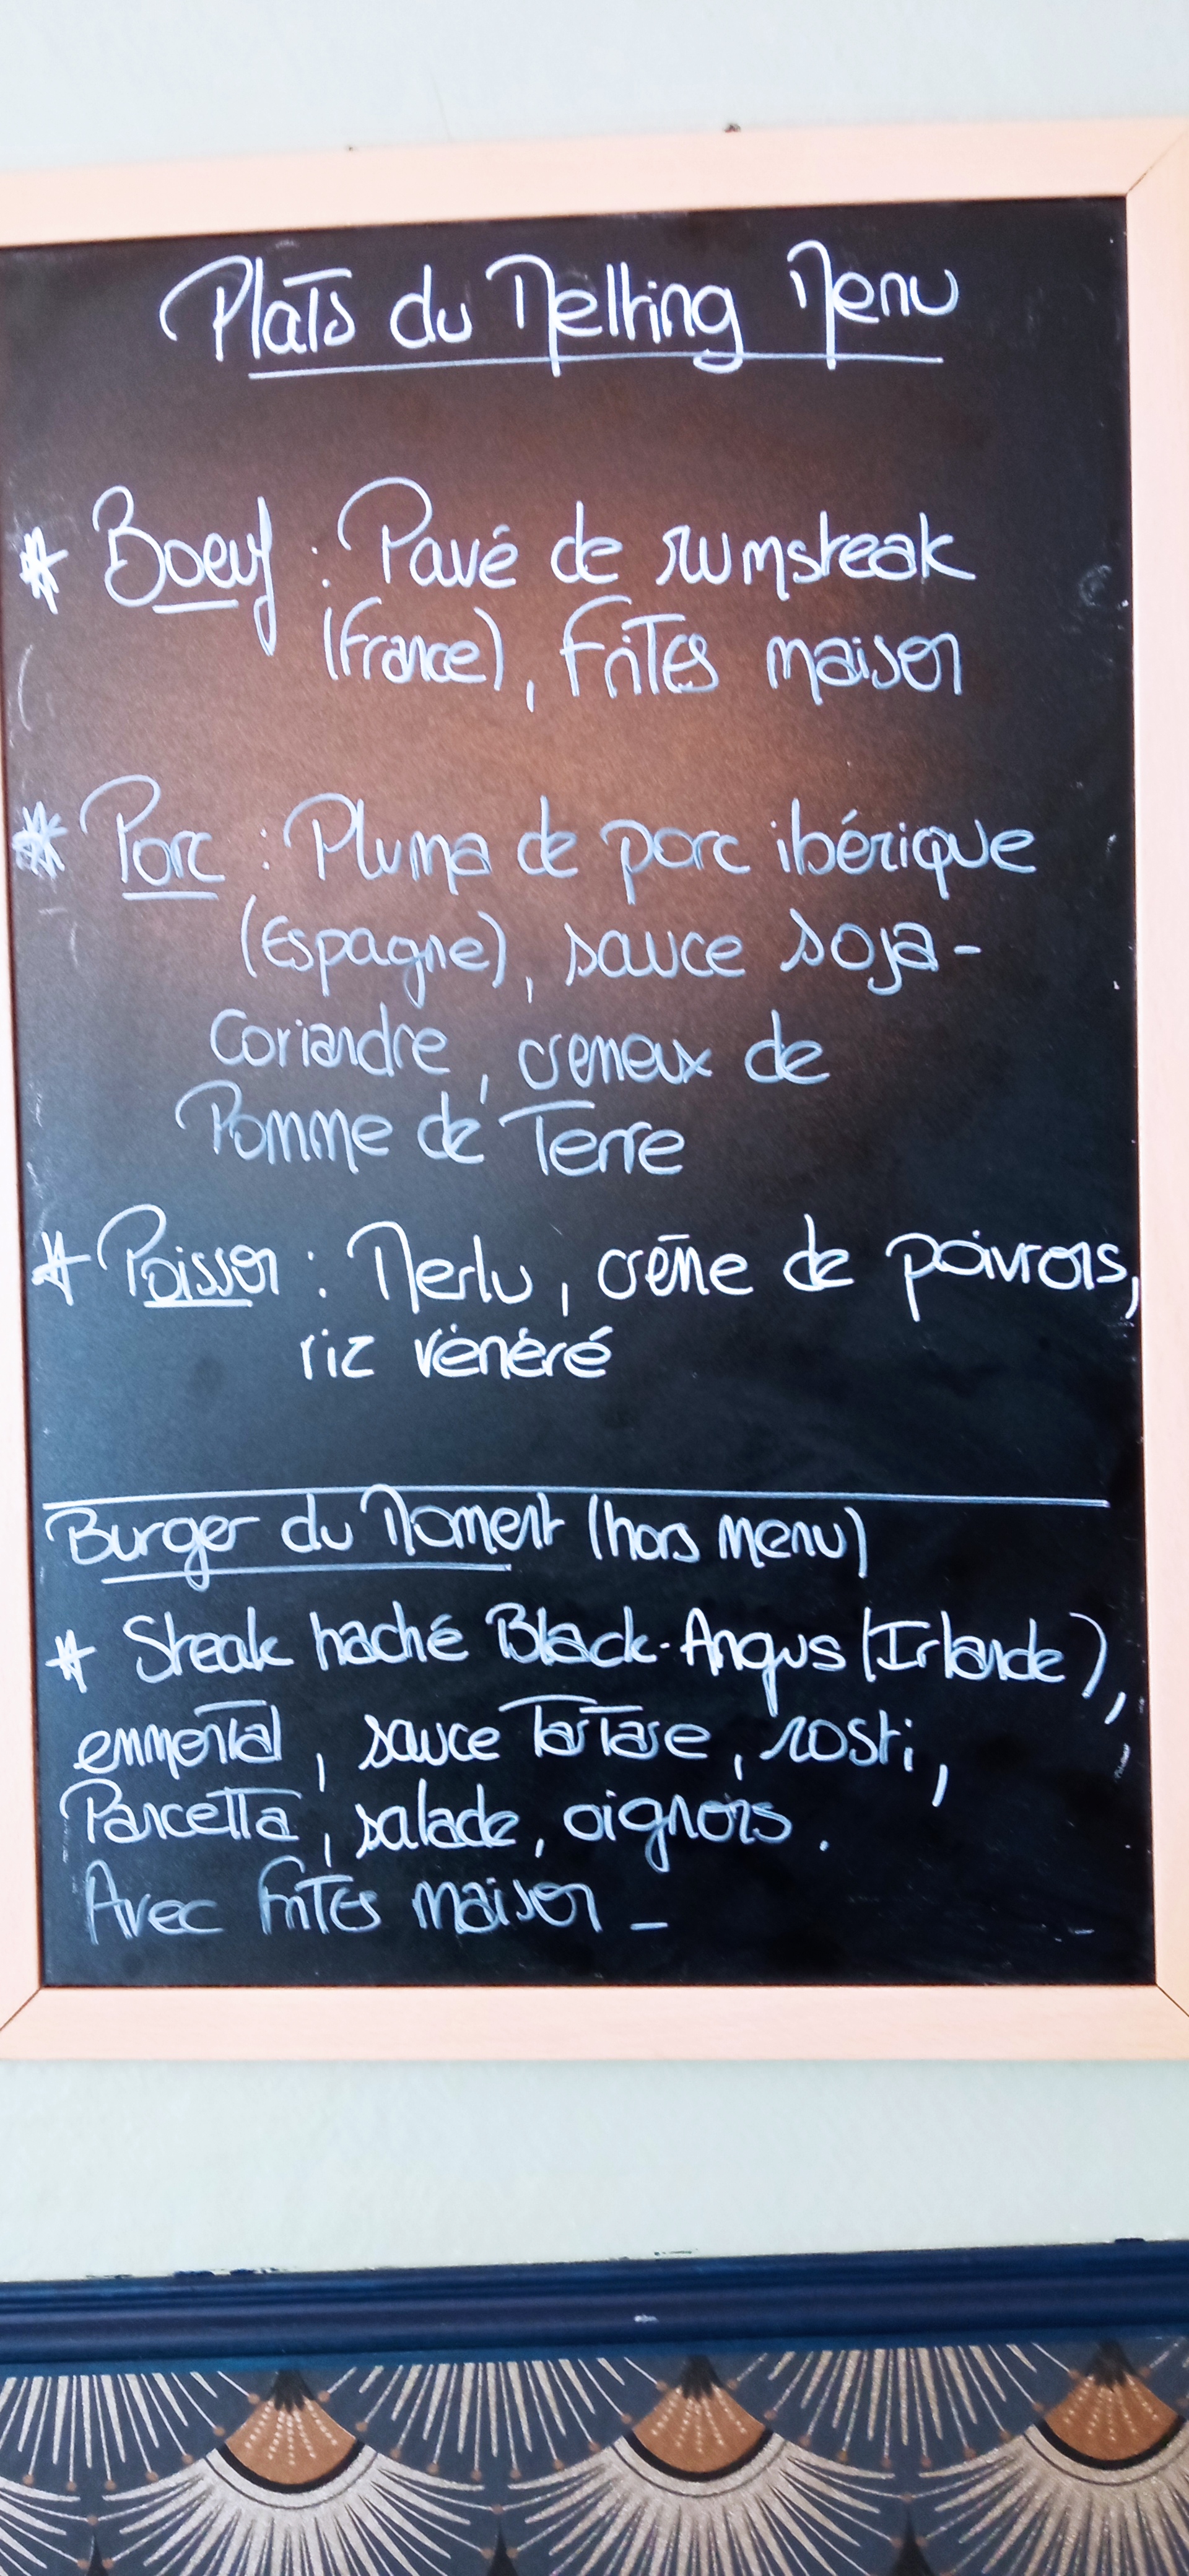 Plats du Melting Menu
* Boeuf : Pavé de rumsteak
(France), Frites maison
* Porc : Pluma de porc ibérique
(Espagne), sauce soja-
Coriandre, cremeux de
Pomme de Terre
* Poisson : Merlu, crème de poivrons,
riz vénéré
Burger du Moment (hors menu)
* Steak haché Black-Angus (Irlande),
emmental, sauce Tartare, rosti,
Pancetta, salade, oignons.
Avec Frites maison -